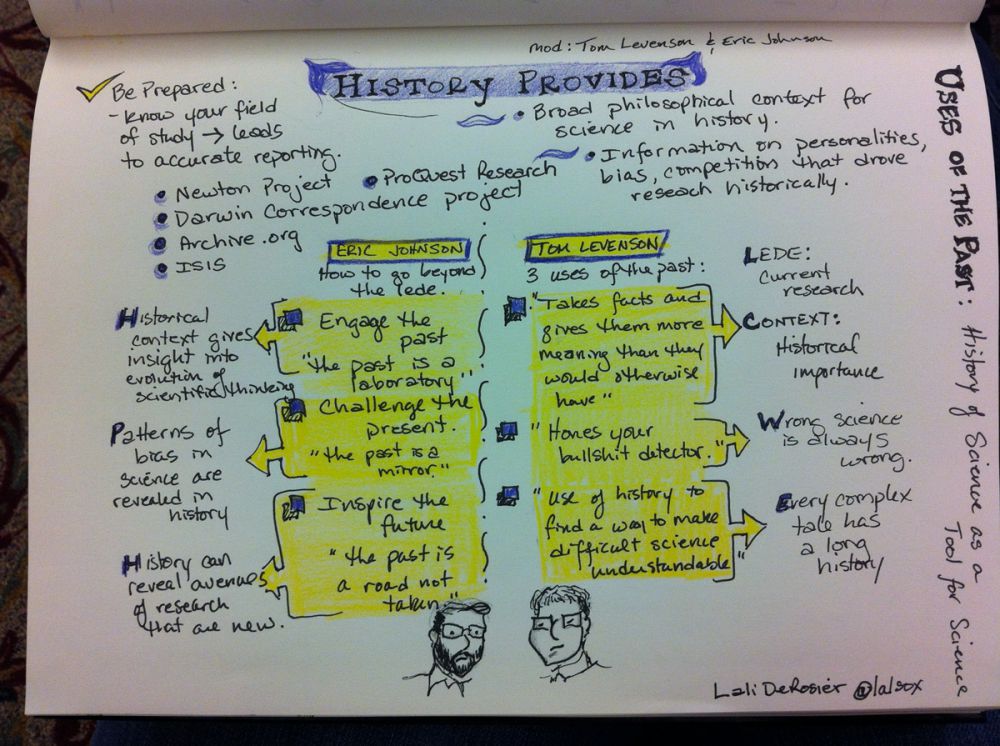 mod: Tom Levenson & Eric Johnson
HISTORY PROVIDES
Be Prepared:
- Know your field
of study → leads
to accurate reporting.
• Newton Project
• Darwin Correspondence project
• Archive.org
• ISIS
• ProQuest Research
• Broad philosophical context for
science in history.
• Information on personalities,
bias, competition that drove
reseach historically.
USES OF THE PAST: History of Science as a
Tool for Science
ERIC JOHNSON
How to go beyond
the lede.
Engage the
past
"the past is a
laboratory"
Challenge the
present.
"the past is a
mirror."
Inspire the
future
"the past is
a road not
taken"
Historical
context gives
insight into
evolution of
scientific thinking
Patterns of
bias in
science are
revealed in
history
History can
reveal avenues
of research
that are new.
TOM LEVENSON
3 uses of the past:
"Takes facts and
gives them more
meaning than they
would otherwise
have"
"Hones your
bullshit detector."
"use of history to
find a way to make
difficult science
understandable"
LEDE:
current
research
CONTEXT:
Historical
importance
Wrong science
is always
wrong.
Every complex
tale has
a long
history
Lali DeRosier @lalsox